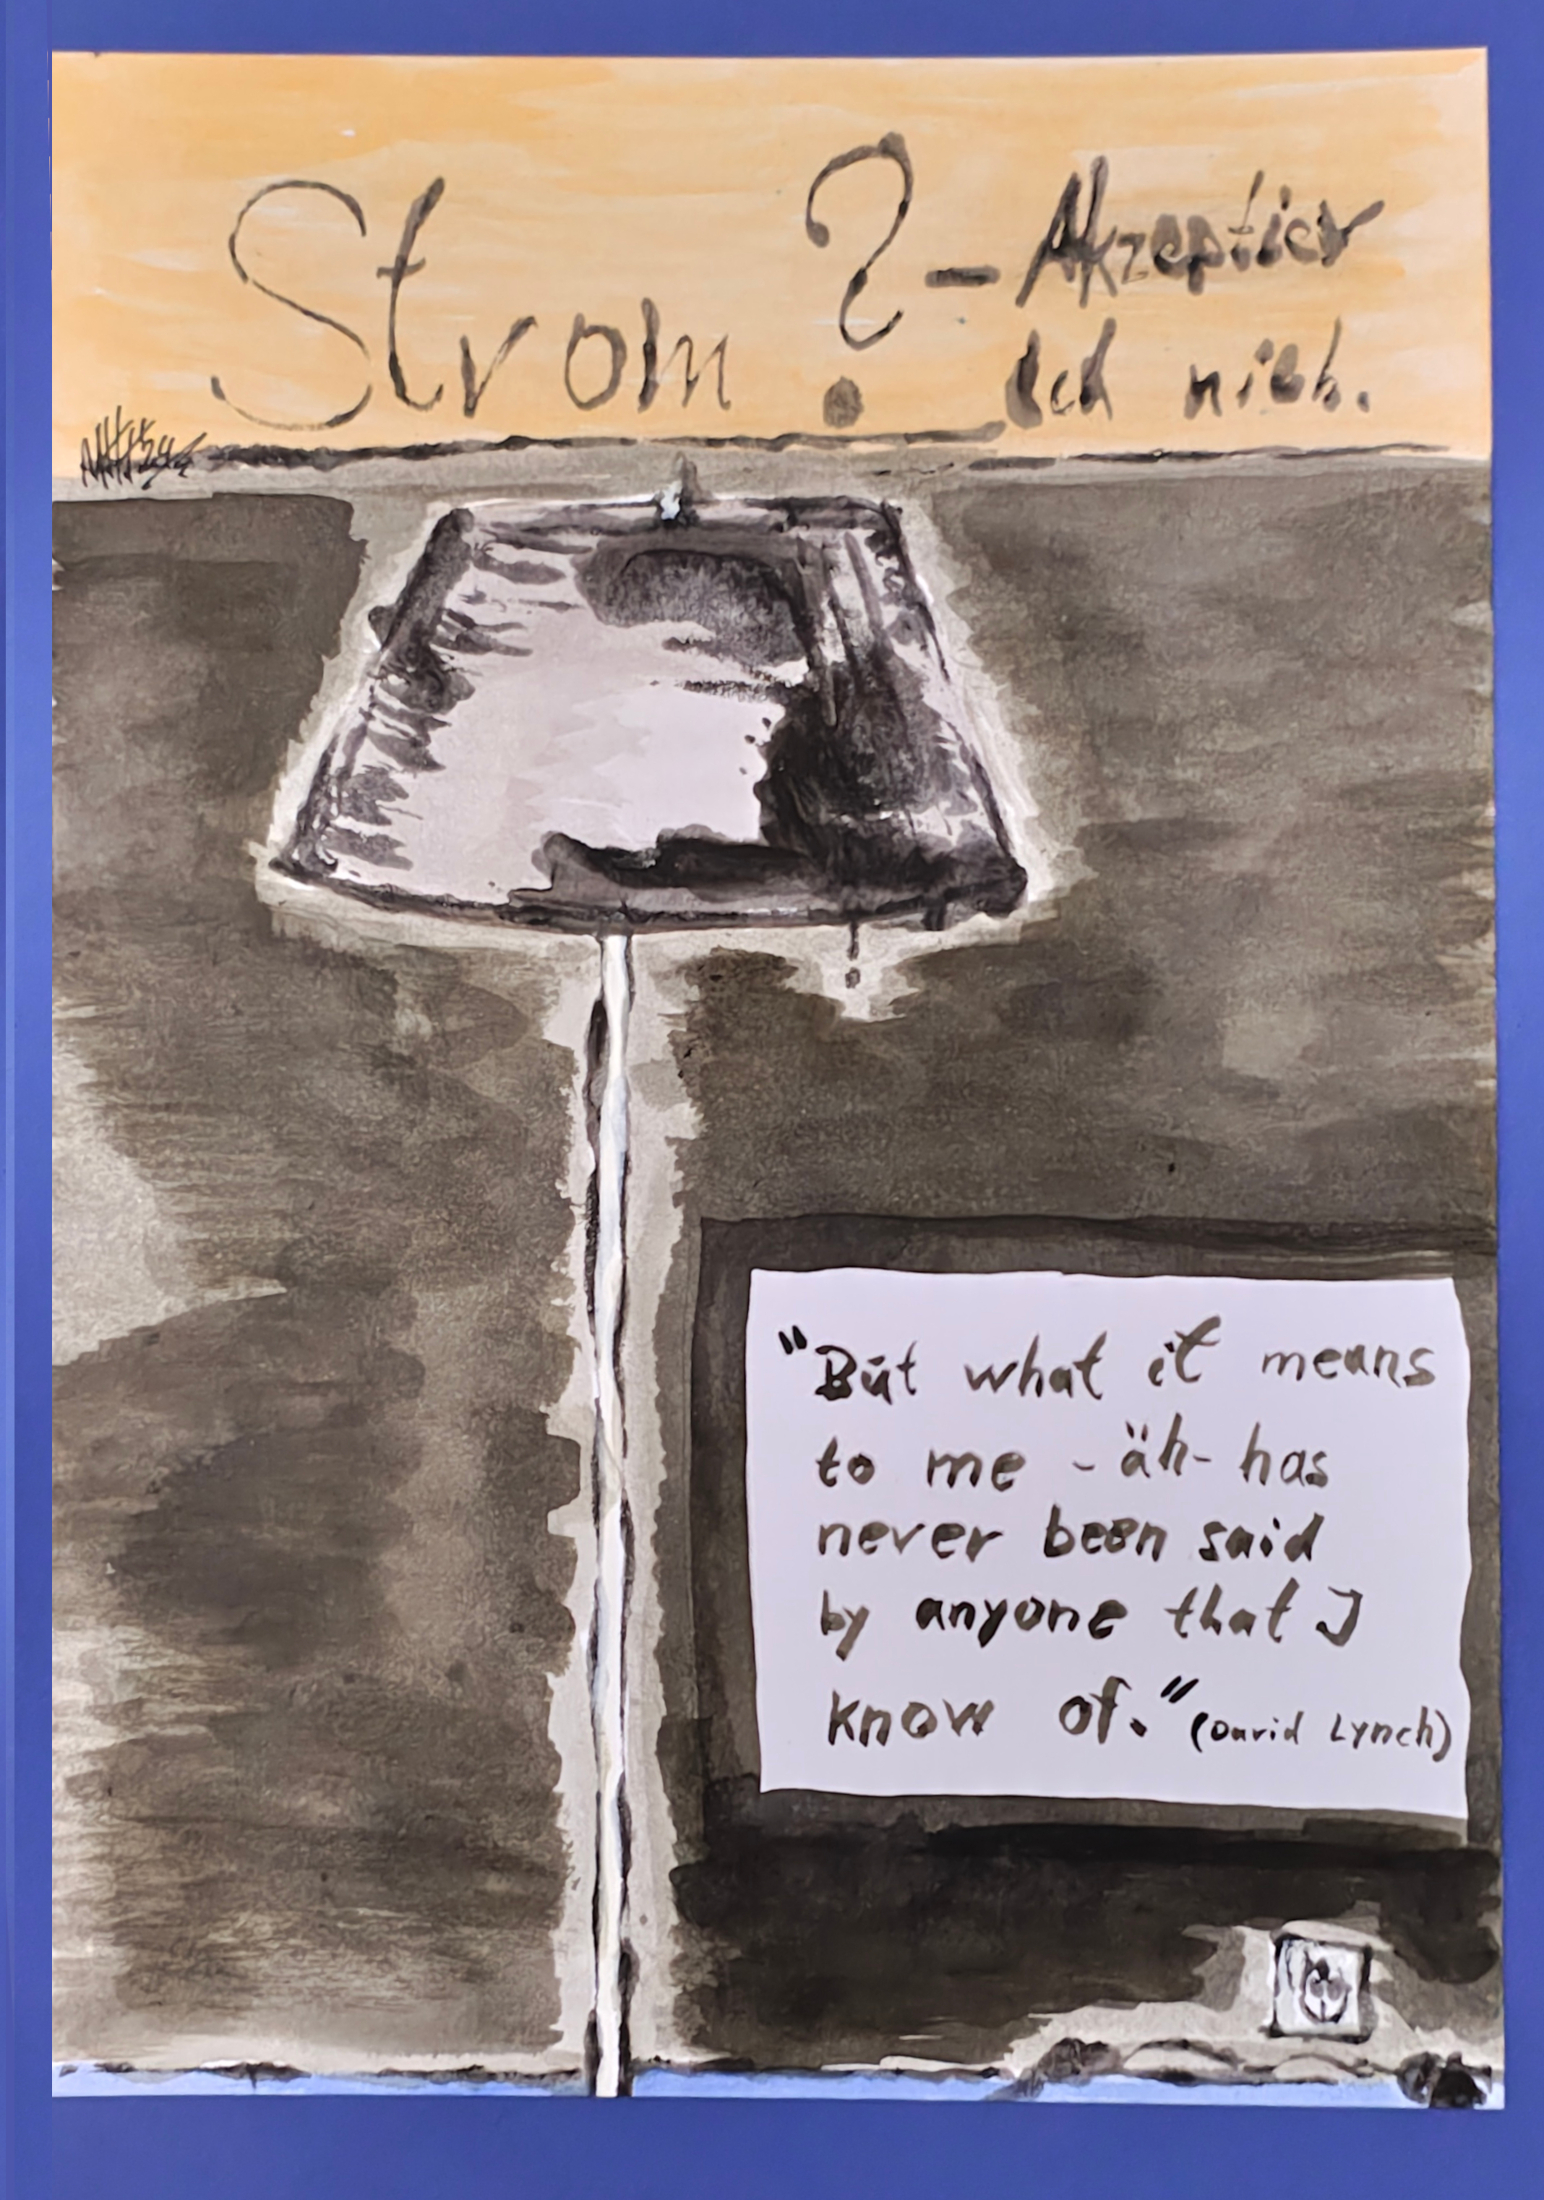 Strom ? – Akzeptier
ich nich.
"But what it means
to me - äh - has
never been said
by anyone that I
know of." (David Lynch)